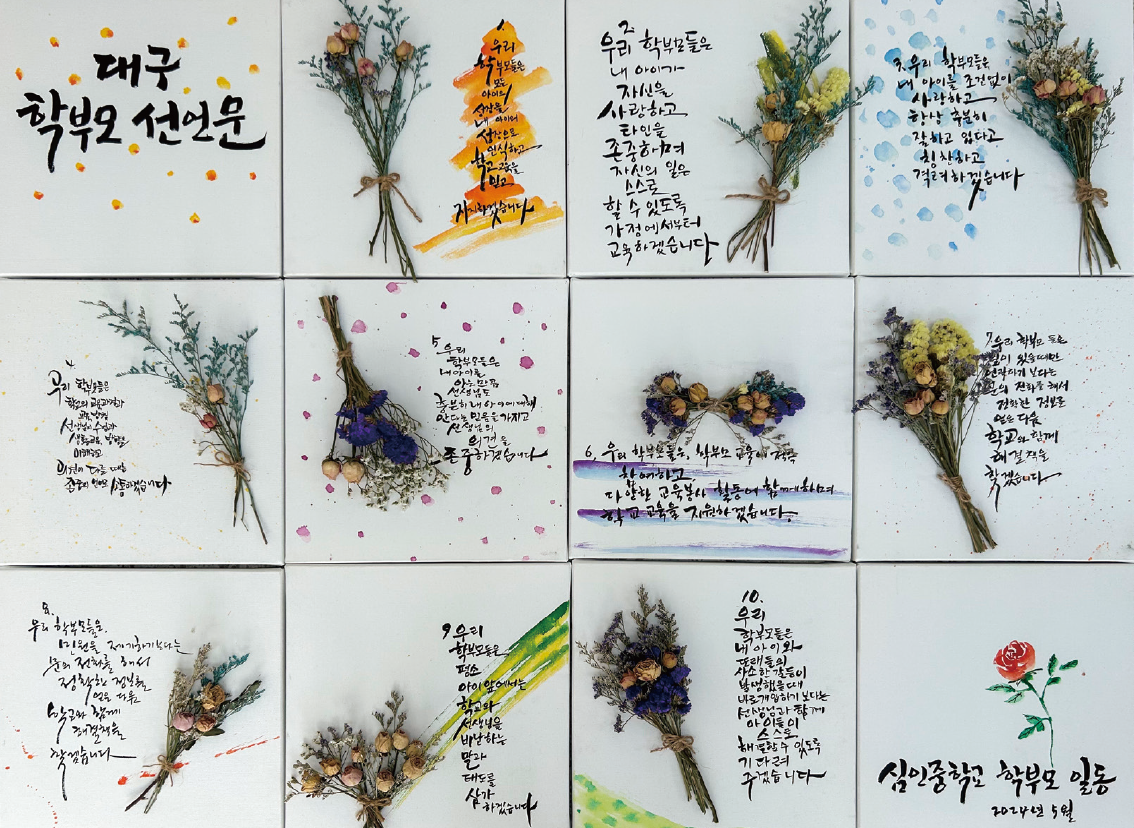 대구
학부모 선언문
1.
우리
학부모들은
모든
아이의
성장을
내 아이의
성장으로
인식하고
학교 교육을
믿고
지지하겠습니다
2.
우리 학부모들은
내 아이가
자신을
사랑하고
타인을
존중하며
자신의 일은
스스로
할 수 있도록
가정에서부터
교육하겠습니다
3. 우리 학부모들은
내 아이를 조건없이
사랑하고
항상 충분히
잘하고 있다고
칭찬하고
격려하겠습니다
4.
우리 학부모들은
학교의 교육과정과
선생님의 수업과
이해하고
의견이 다를 때는
소통하겠습니다
5. 우리
학부모들은
내 아이를
아는 만큼
선생님도
충분히 내 아이에 대해
안다는 믿음을 가지고
선생님의
의견을
존중하겠습니다
6. 우리 학부모들은, 학부모 교육에 적극
참여하고,
다양한 교육봉사 활동에 함께하며
학교 교육을 지원하겠습니다.
7. 우리 학부모들은
일이 있을때만
연락하기 보다는
문의 전화를 해서
정확한 정보를
얻은 다음
학교와 함께
해결책을
찾겠습니다
8.
우리 학부모들은,
민원을 제기하기보다는
문의 전화를 해서
정확한 정보를
얻은 다음
학교와 함께
해결책을
찾겠습니다
9. 우리
학부모들은
평소
아이 앞에서는
학교와
선생님을
비난하는
말과
태도를
삼가
하겠습니다
10.
우리
학부모들은
내 아이와
또래들의
사소한 갈등이
발생했을때
바로 개입하기 보다는
선생님과 함께
아이들이
스스로
해결할 수 있도록
기다려
주겠습니다
심인중학교 학부모 일동
2024년 5월